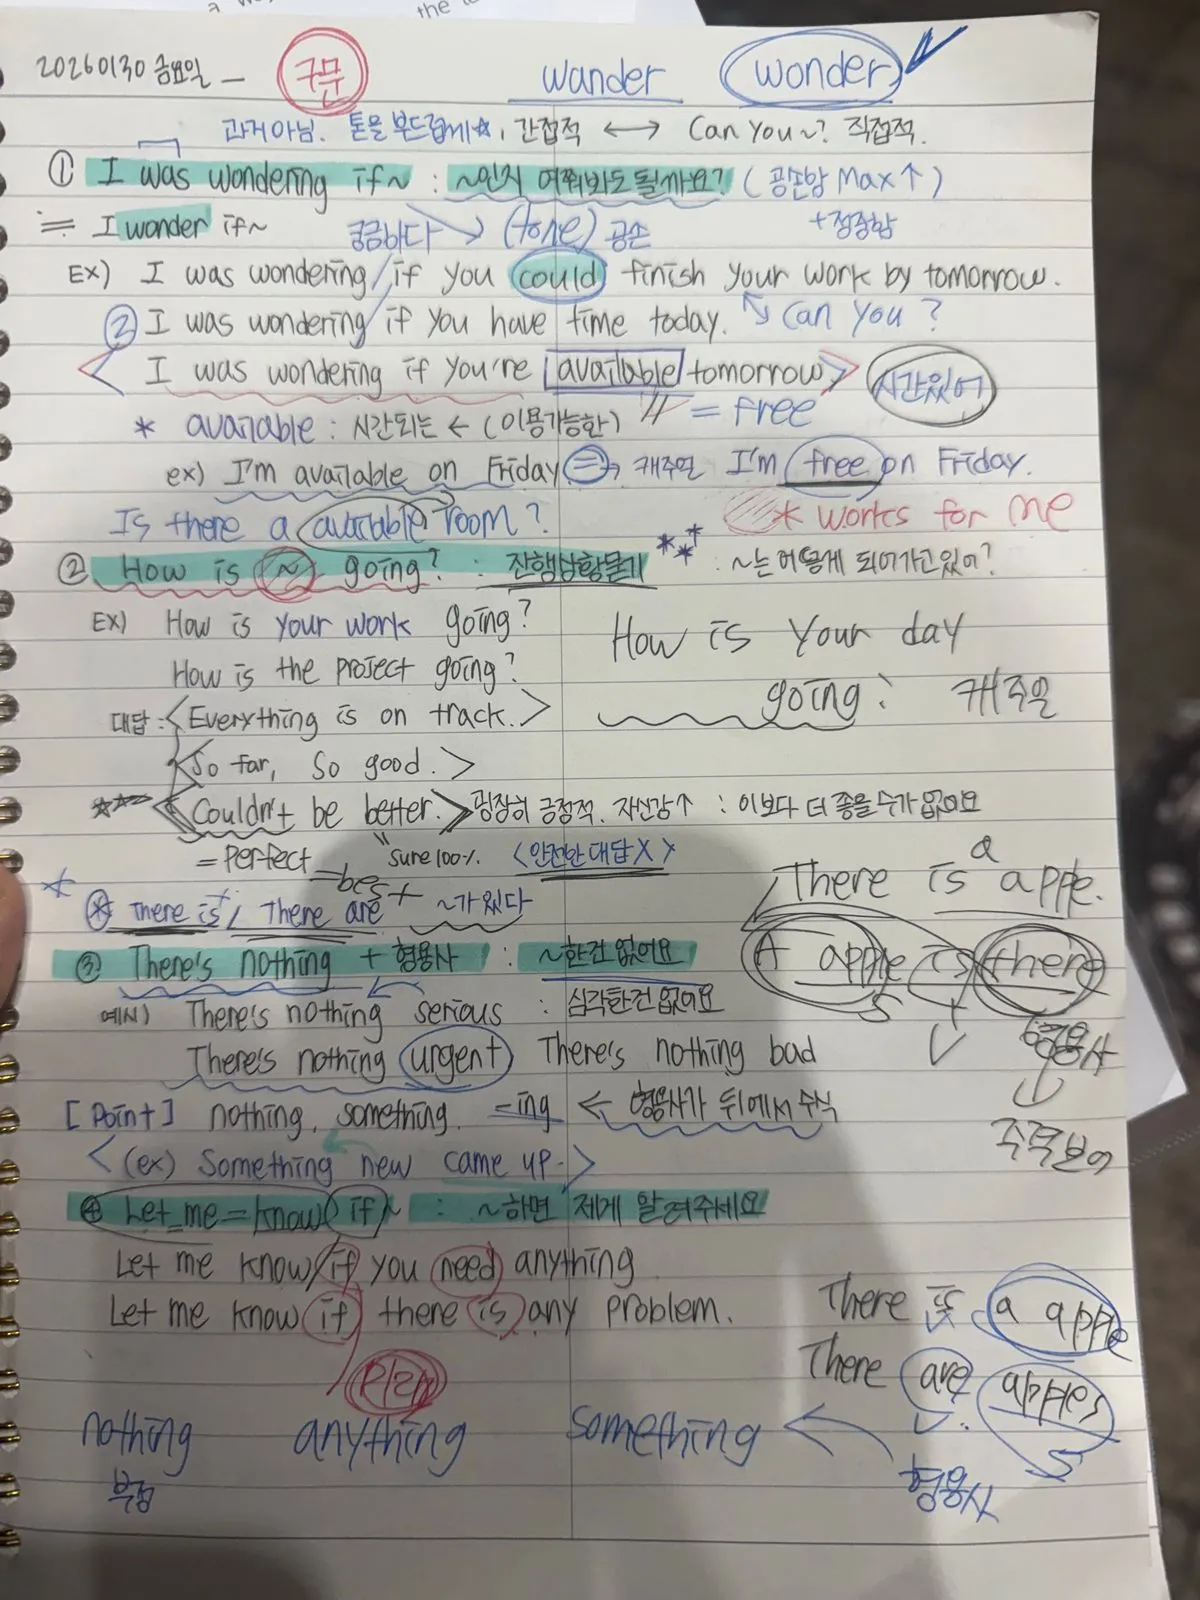 20260130 금요일 - 구문 wander wonder
과거아님. 톤을 부드럽게☆, 간접적 ↔ Can you~? 직접적.
① I was wondering if~ : ~인지 여쭤봐도 될까요? (공손함 Max↑)
≒ I wonder if~ 궁금하다 → (tone) 공손 +정중함
EX) I was wondering/if you could finish your work by tomorrow.
② I was wondering/if you have time today. ↔ Can you?
< I was wondering if you're available tomorrow> 시간있어
* available : 시간되는 ← (이용가능한) = free
ex) I'm available on Friday = → 캐주얼 I'm free on Friday.
Is there a available room? * works for me
② How is ~ going? : 진행상황묻기 *** : ~는 어떻게 되어가고있어?
EX) How is your work going? How is your day
How is the project going? going? 캐주얼
대답: <Everything is on track.>
<So far, So good.>
☆☆☆ <Couldn't be better.> 굉장히 긍정적. 자신감↑ : 이보다 더 좋을 수가 없어요
= Perfect =best "sure100% <안전한대답X>
There is a apple.
* There is / There are + ~가 있다
③ There's nothing + 형용사 : ~한건 없어요 A apple is there
예시) There's nothing serious : 심각한건 없어요 S + V 형용사
There's nothing urgent There's nothing bad ↓
[Point] nothing, something. -ing ← 형용사가 뒤에서 수식 주격보어
<(ex) Something new came up.>
④ Let me=know if~ : ~하면 제게 알려주세요
Let me know/if you need anything
Let me know if there is any problem. There is a apple
There are apples
plan
nothing anything something ←
부정 형용사 S